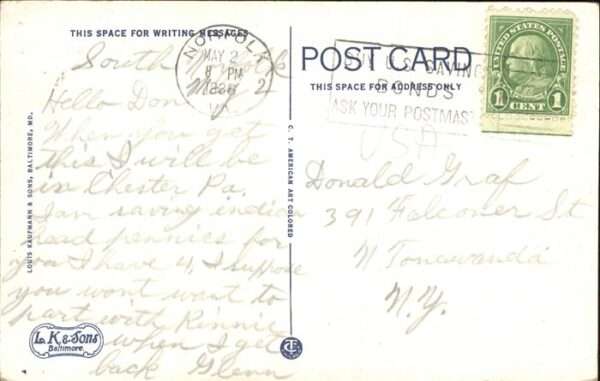 THIS SPACE FOR WRITING MESSAGES
South Norfolk
May 2
Hello Don
When you get
this I will be
in Chester Pa.
I am saving indian
head pennies for
you I have 4, I suppose
you wont want to
part with Rinnie
when I get
back Glenn
NORFOLK
MAY 2
8 PM
VA.
POST CARD
THIS SPACE FOR ADDRESS ONLY
BUY U.S. SAVINGS
BONDS
ASK YOUR POSTMASTER
UNITED STATES POSTAGE
1 CENT 1
USA
Donald Graf
391 Falconer St
N Tonawanda
N.Y.
LOUIS KAUFMANN & SONS, BALTIMORE, MD.
C. T. AMERICAN ART COLORED
L. K. & Sons
Baltimore.